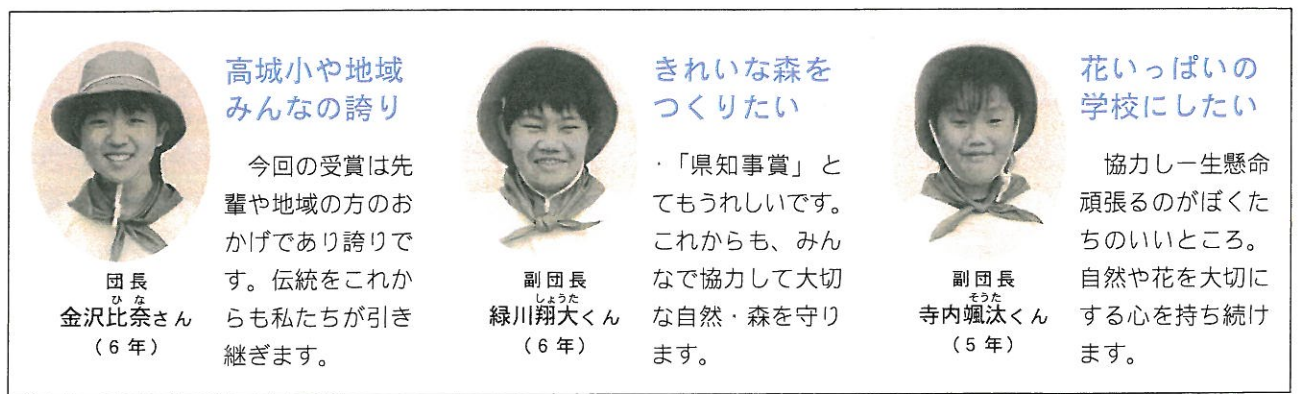 高城小や地域
みんなの誇り
今回の受賞は先
輩や地域の方のお
かげであり誇りで
す。伝統をこれか
らも私たちが引き
継ぎます。
団長
ひな
金沢比奈さん
(6年)
きれいな森を
つくりたい
・「県知事賞」と
てもうれしいです。
これからも、みん
なで協力して大切
な自然・森を守り
ます。
副団長
しょうた
緑川翔大くん
(6年)
花いっぱいの
学校にしたい
協力し一生懸命
頑張るのがぼくた
ちのいいところ。
自然や花を大切に
する心を持ち続け
ます。
副団長
そうた
寺内颯汰くん
(5年)